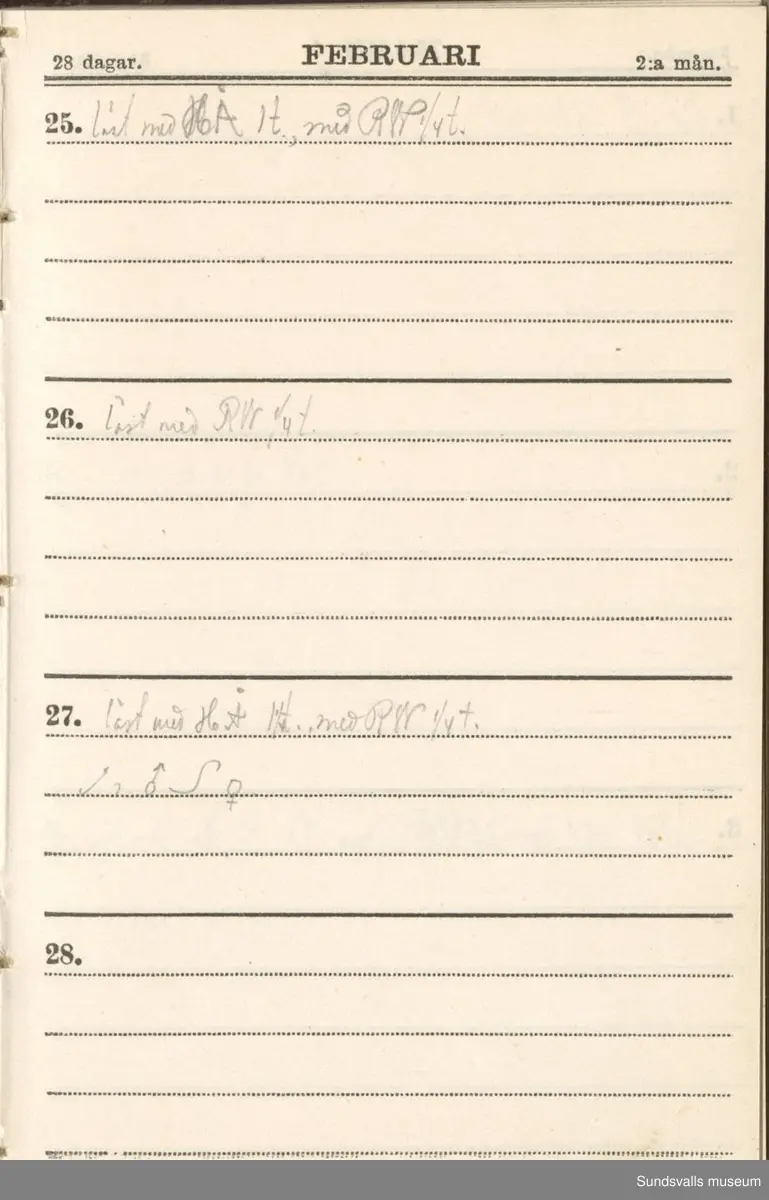 28 dagar. FEBRUARI 2:a mån.
25. läst med HÅ 1t., med RW 1/4 t.
26. läst med RW 1/4 t.
27. läst med HÅ 1t., med RW 1/4 t.
♂ ♀
28.
Sundsvalls museum